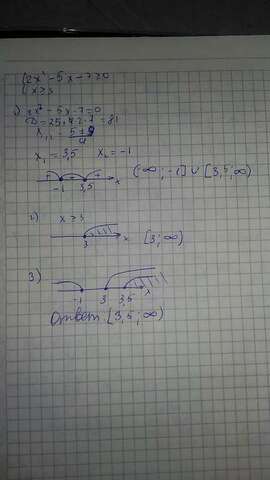 {2x² - 5x - 7 ≥ 0
{x ≥ 3
1) 2x² - 5x - 7 = 0
D = 25 + 4·2·7 = 81
x₁,₂ = (5 ± 9)/4
x₁ = 3,5 x₂ = -1
+ - + -1 3,5 x (∞; -1] ∪ [3,5; ∞)
2) x ≥ 3
3 x [3; ∞)
3)
-1 3 3,5 x
Ответ [3,5; ∞)